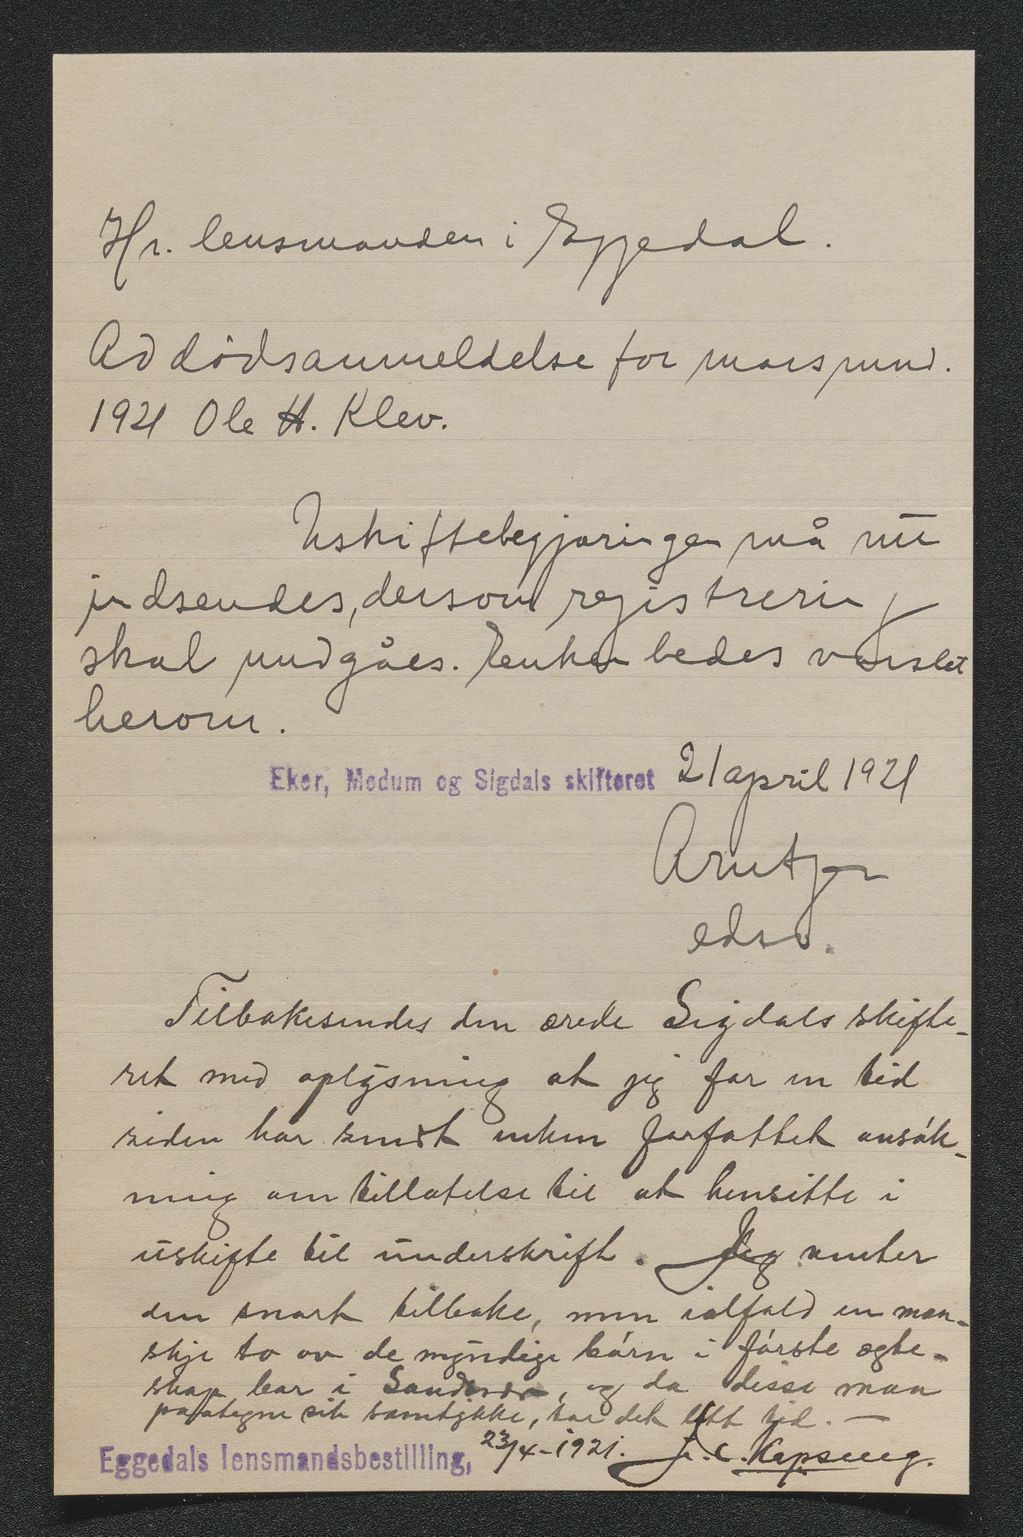 Hr. lensmanden i Eggedal.
Ad dødsanmeldelse for
1921 Ole H. Klev.
Uskiftebegjæringen må nu
indsendes, dersom registrering
skal undgåes. Enken bedes varslet
herom.
Eker, Modum og Sigdals skifteret 21 april 1921
Arntzen
edsv.
Tilbakesendes den ærede Sigdals skifte-
ret med oplysning at jeg for en tid
siden har sendt enken forfattet ansøk-
ning om tillatelse til at hensitte i
uskifte til underskrift. Jeg venter
den snart tilbake, men ialfald en man-
skje to av de myndige børn i første egte-
skap bor i Sandsvær, og da disse maa
paategne sit samtykke, tar det litt tid. —
Eggedals lensmandsbestilling, 23/4-1921. Kopseng.